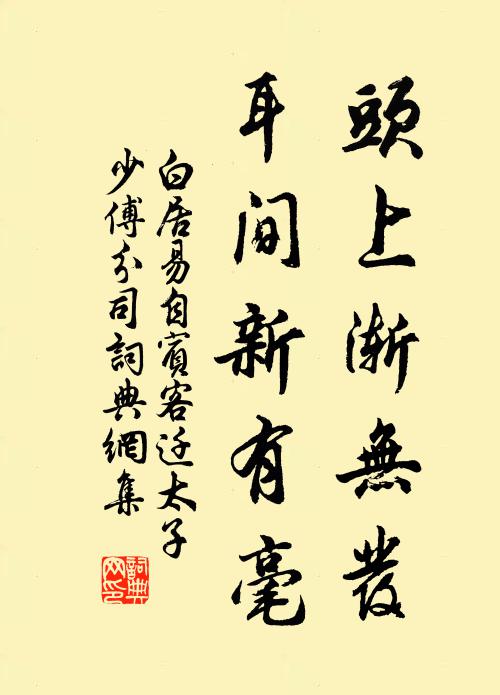 頭上漸無發
耳間新有毫
白居易自賓客迁太子
少傅分司詞典網集
詞典
网印